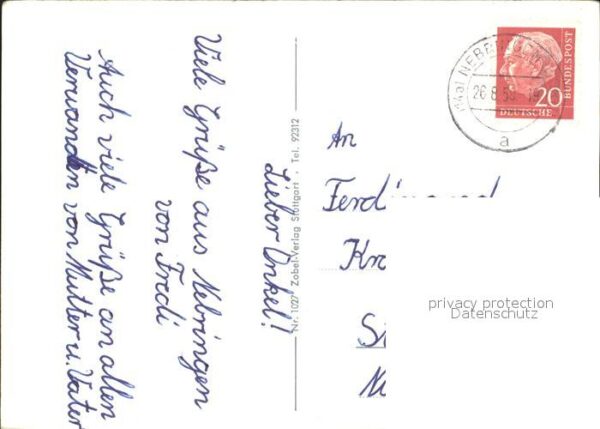 Lieber Onkel!
Viele Grüße aus Nebringen
von Fredi
Auch viele Grüße an allen
Verwanden von Mutter u. Vater
Nr. 1027 Zobel-Verlag Stuttgart . Tel. 92312
An
DEUTSCHE
BUNDESPOST
20
a
privacy protection
Datenschutz